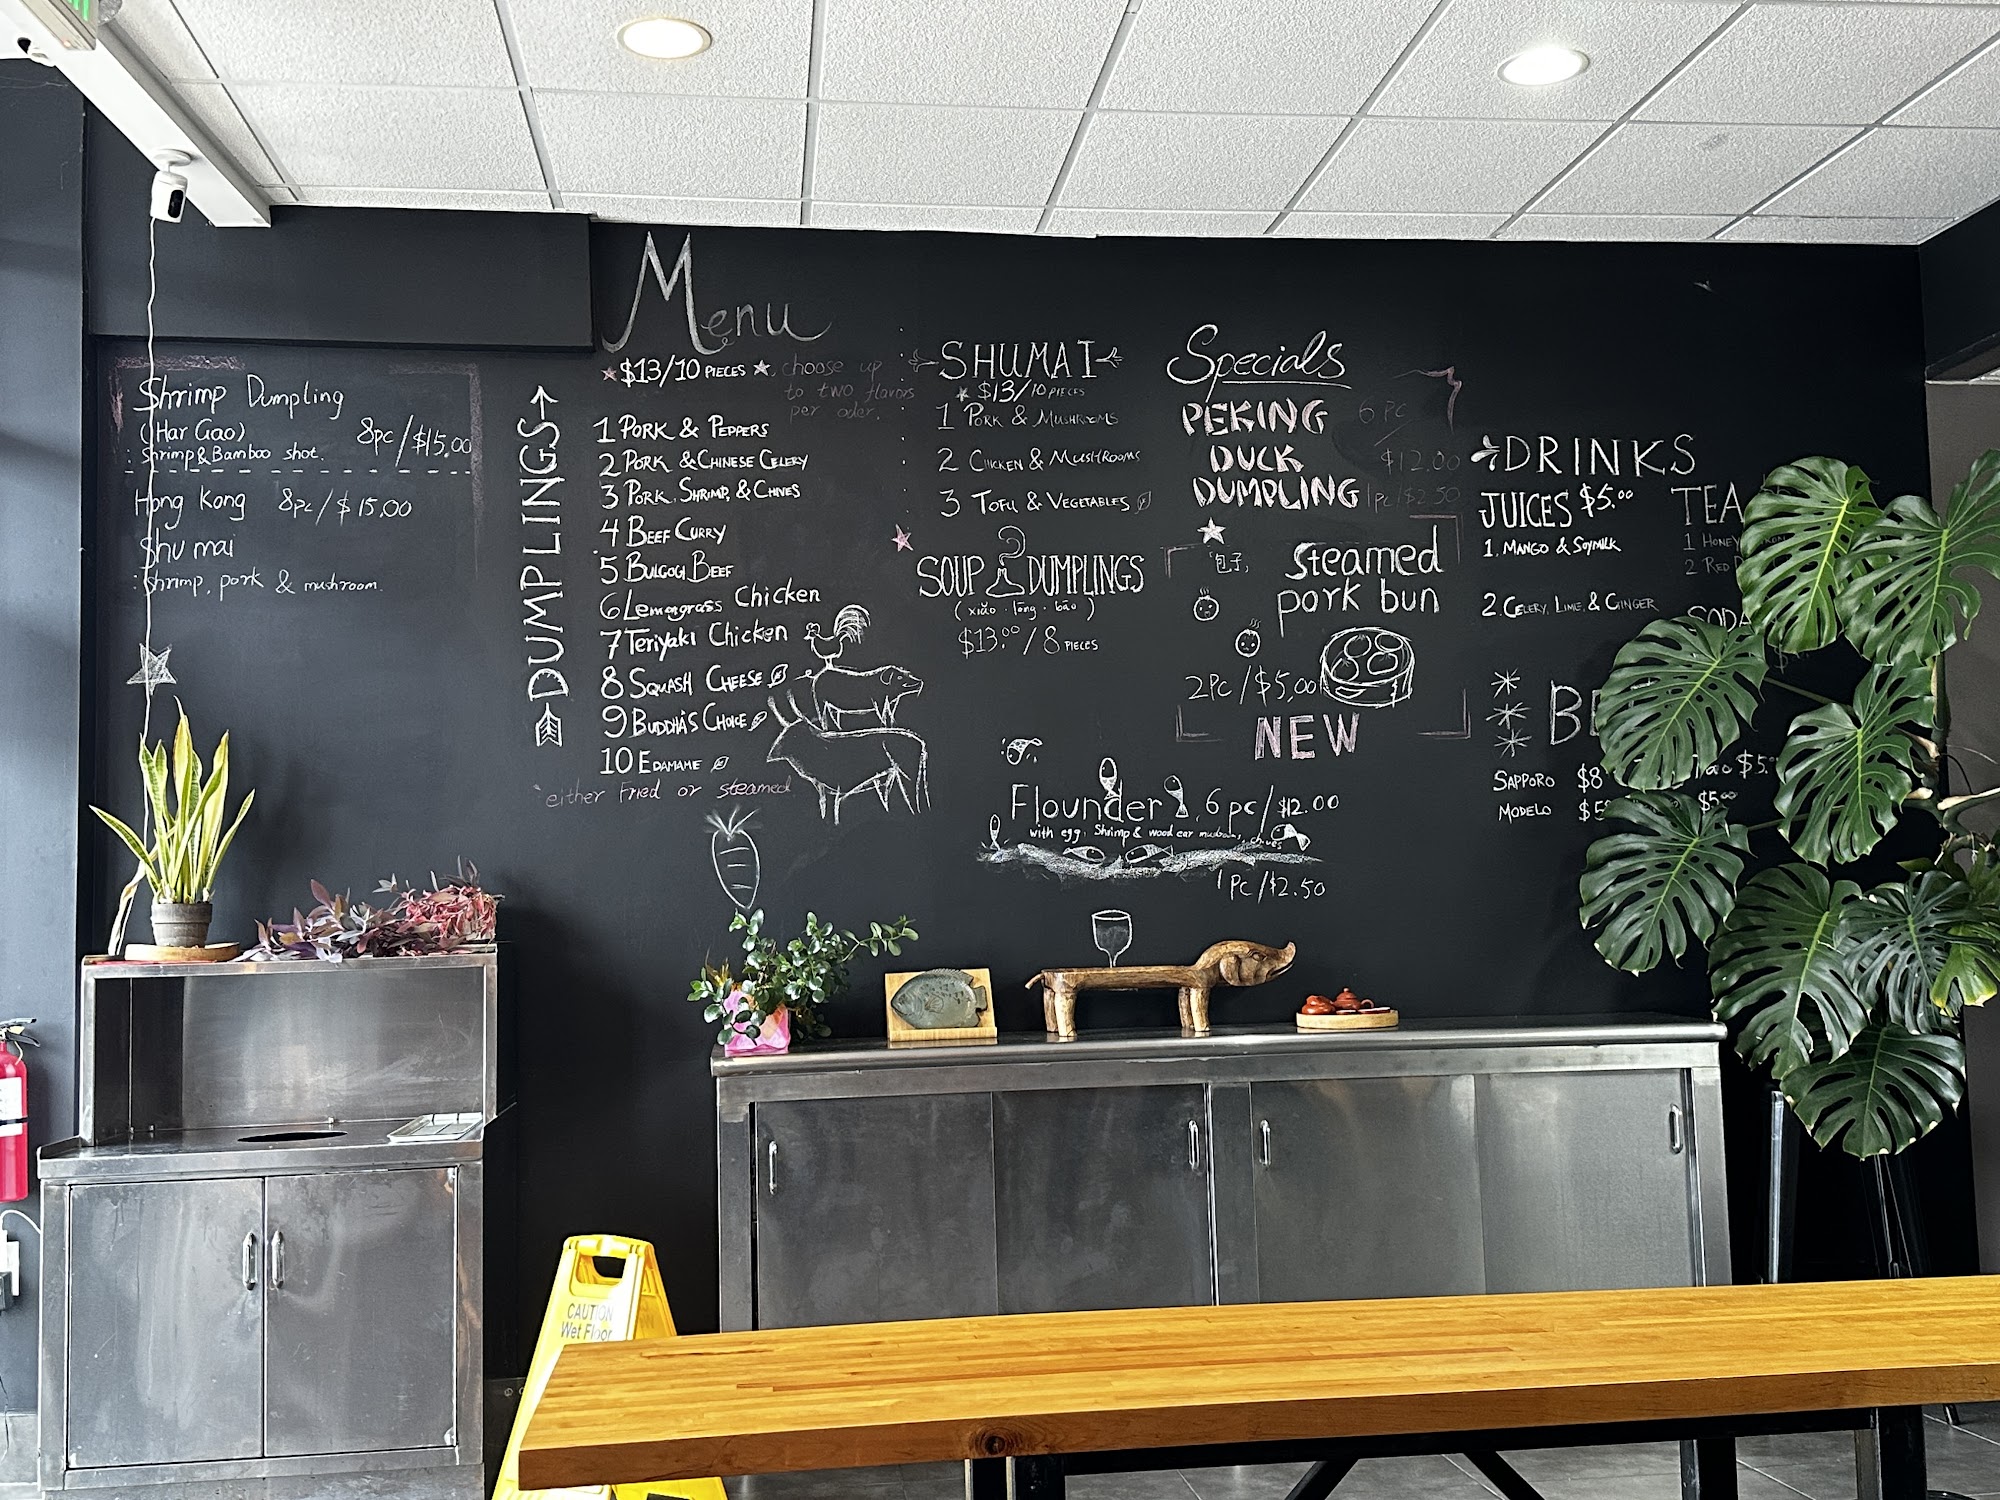 Menu
$13/10 PIECES
choose up
to two flavors
per oder.
DUMPLINGS
1 PORK & PEPPERS
2 PORK & CHINESE CELERY
3 PORK, SHRIMP, & CHIVES
4 BEEF CURRY
5 BULGOGI BEEF
6 Lemongrass Chicken
7 Teriyaki Chicken
8 SQUASH CHEESE
9 BUDDHA'S CHOICE
10 EDAMAME
*either Fried or steamed
Shrimp Dumpling
(Har Gao) 8pc/$15.00
: Shrimp & Bamboo shot.
Hong Kong 8pc/$15.00
Shu mai
: Shrimp, pork & mushroom.
SHUMAI
$13/10 PIECES
1 PORK & MUSHROOMS
2 CHICKEN & MUSHROOMS
3 TOFU & VEGETABLES
SOUP DUMPLINGS
(xiǎo · lóng · bāo)
$13.00/8 PIECES
Specials
PEKING 6 PC
DUCK $12.00
DUMPLING 1 pc/$2.50
包子,
steamed
pork bun
2PC/$5.00
NEW
Flounder, 6 pc/$12.00
with egg, Shrimp & wood ear mushroom, chives
1 PC/$2.50
DRINKS
JUICES $5.00
1. MANGO & SOYMILK
2. CELERY, LIME, & GINGER
TEA
1 HONEY
2 RED
SODA
SAPPORO $8
MODELO $5
$5.00
CAUTION
Wet Floor